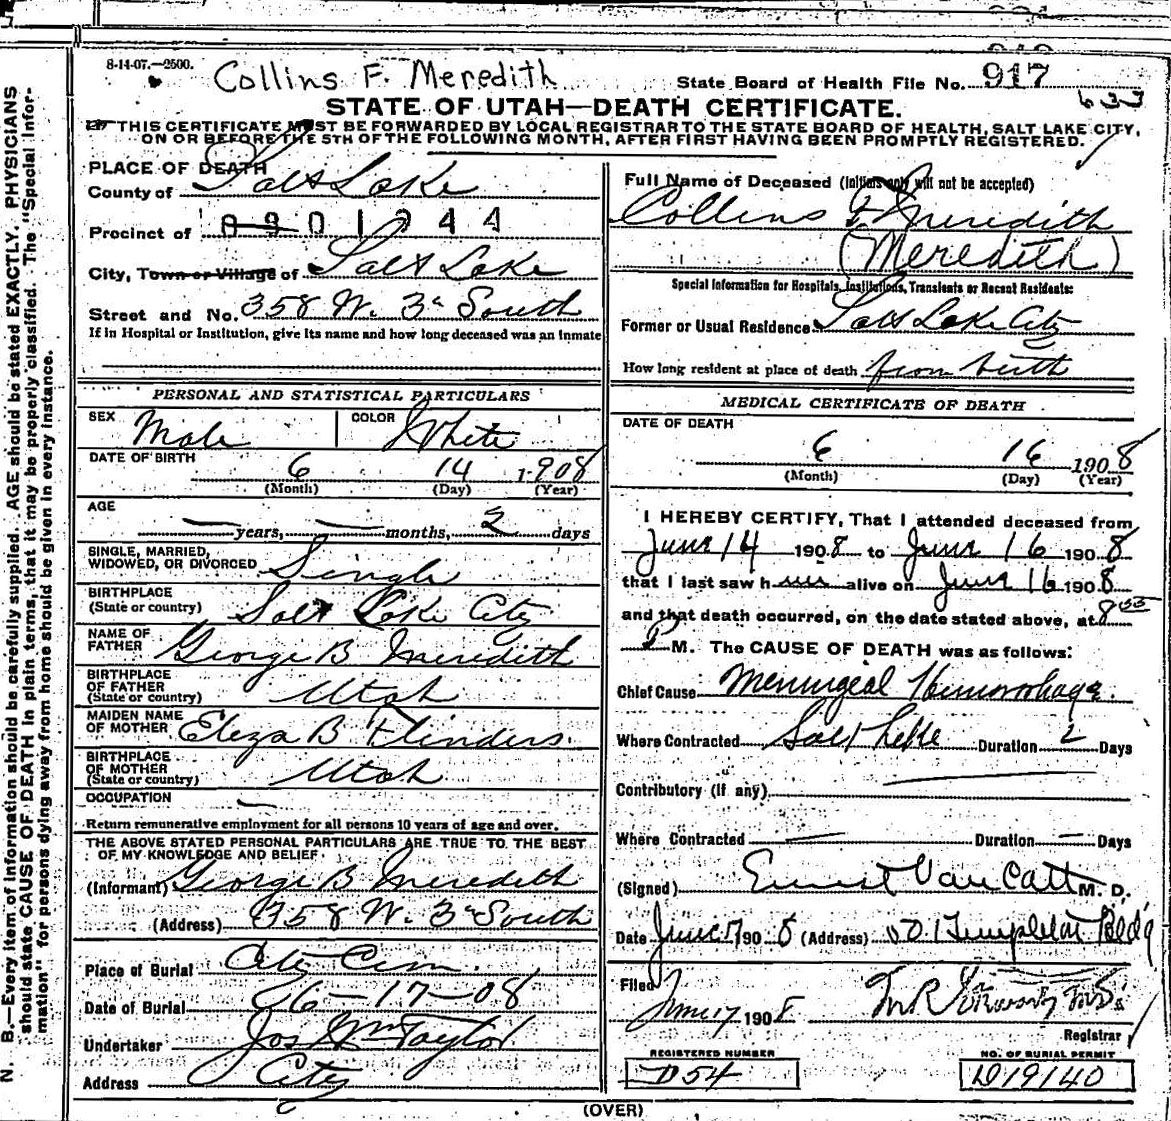 8-14-07.—2500.
Collins F. Meredith
State Board of Health File No. 917
633
STATE OF UTAH—DEATH CERTIFICATE.
THIS CERTIFICATE MUST BE FORWARDED BY LOCAL REGISTRAR TO THE STATE BOARD OF HEALTH, SALT LAKE CITY,
ON OR BEFORE THE 5TH OF THE FOLLOWING MONTH, AFTER FIRST HAVING BEEN PROMPTLY REGISTERED.
PLACE OF DEATH
County of Salt Lake
Precinct of 0901244
City, Town or Village of Salt Lake
Street and No. 358 W. 3d South
If in Hospital or Institution, give its name and how long deceased was an inmate
PERSONAL AND STATISTICAL PARTICULARS
SEX Male COLOR White
DATE OF BIRTH 6 14 1908
(Month) (Day) (Year)
AGE
— years, — months, 2 days
SINGLE, MARRIED,
WIDOWED, OR DIVORCED Single
BIRTHPLACE
(State or country) Salt Lake City
NAME OF
FATHER George B Meredith
BIRTHPLACE
OF FATHER
(State or country) Utah
MAIDEN NAME
OF MOTHER Eliza B Flinders.
BIRTHPLACE
OF MOTHER
(State or country) Utah
OCCUPATION —
Return remunerative employment for all persons 10 years of age and over.
THE ABOVE STATED PERSONAL PARTICULARS ARE TRUE TO THE BEST
OF MY KNOWLEDGE AND BELIEF.
(Informant) George B Meredith
(Address) 358 W. 3d South
Place of Burial City Cem.
Date of Burial 6-17-08
Undertaker Jos Wm Taylor
Address City
Full Name of Deceased (Initials only will not be accepted)
Collins F. Meredith
(Meredith)
Special Information for Hospitals, Institutions, Transients or Recent Residents:
Former or Usual Residence Salt Lake City
How long resident at place of death from birth
MEDICAL CERTIFICATE OF DEATH
DATE OF DEATH
6 16 1908
(Month) (Day) (Year)
I HEREBY CERTIFY, That I attended deceased from
June 14 1908 to June 16 1908
that I last saw him alive on June 16 1908
and that death occurred, on the date stated above, at 8 55
P M. The CAUSE OF DEATH was as follows:
Chief Cause Meningeal Hemorrhage.
Where Contracted Salt Lake Duration 2 Days
Contributory (if any) —
Where Contracted — Duration — Days
(Signed) Ernest Van Cott M. D.
Date June 17 1908 (Address) 501 Templeton Bldg
Filed
June 17 1908
Registrar
REGISTERED NUMBER
D54
NO. OF BURIAL PERMIT
D19140
(OVER)
N. B.—Every item of information should be carefully supplied. AGE should be stated EXACTLY. PHYSICIANS
should state CAUSE OF DEATH in plain terms, that it may be properly classified. The "Special Infor-
mation" for persons dying away from home should be given in every instance.